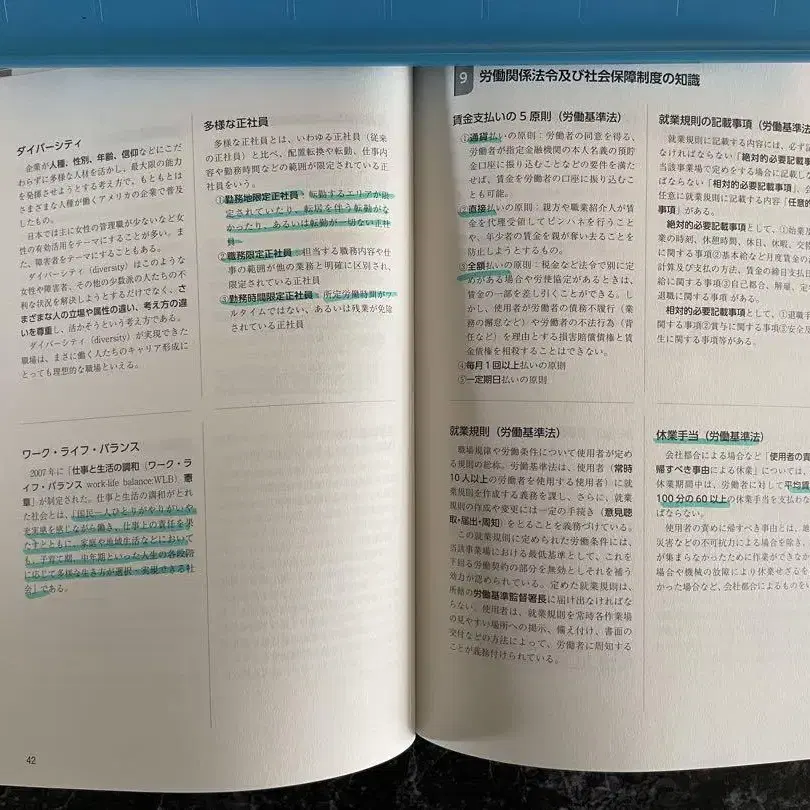 ダイバーシティ
企業が人種、性別、年齢、信仰などにこだ
わらずに多様な人材を活かし、最大限の能力
を発揮させようとする考え方で、もともとは
さまざまな人種が働くアメリカの企業で普及
したもの。
日本では主に女性の管理職が少ないなど女
性の有効活用をテーマにすることが多い。ま
た、障害者をテーマにすることもある。
ダイバーシティ（diversity）はこのような
女性や障害者、その他の少数派の人たちの不
利な状況を解決しようとするだけでなく、さ
まざまな人の立場や属性の違い、考え方の違
いを尊重し、活かそうという考え方である。
ダイバーシティ（diversity）が実現できた
職場は、まさに働く人たちのキャリア形成に
とっても理想的な職場といえる。
ワーク・ライフ・バランス
2007年に「仕事と生活の調和（ワーク・ラ
イフ・バランス work-life balance:WLB）憲
章」が制定された。仕事と生活の調和がとれ
た社会とは、「国民一人ひとりがやりがいや
充実感を感じながら働き、仕事上の責任を果
たすとともに、家庭や地域生活などにおいて
も、子育て期、中高年期といった人生の各段階
に応じて多様な生き方が選択・実現できる社
会」である。
多様な正社員
多様な正社員とは、いわゆる正社員（従来
の正社員）と比べ、配置転換や転勤、仕事内
容や勤務時間などの範囲が限定されている正
社員をいう。
①勤務地限定正社員：転勤するエリアが限
定されていたり、転居を伴う転勤がな
かったり、あるいは転勤が一切ない正社
員
②職務限定正社員：担当する職務内容や仕
事の範囲が他の業務と明確に区別され、
限定されている正社員
③勤務時間限定正社員：所定労働時間がフ
ルタイムではない、あるいは残業が免除
されている正社員
42
9 労働関係法令及び社会保障制度の知識
賃金支払いの5原則（労働基準法）
①通貨払いの原則：労働者の同意を得る、
労働者が指定金融機関の本人名義の預貯
金口座に振り込むことなどの要件を満た
せば、賃金を労働者の口座に振り込むこ
とも可能。
②直接払いの原則：親方や職業紹介人が賃
金を代理受領してピンハネを行うこと
や、年少者の賃金を親が奪い去ることを
防止しようとするもの。
③全額払いの原則：税金など法令で別に定
めがある場合や労使協定があるときは、
賃金の一部を差し引くことができる。し
かし、使用者が労働者の債務不履行（業
務の懈怠など）や労働者の不法行為（背
任など）を理由とする損害賠償債権と賃
金債権を相殺することはできない。
④毎月1回以上払いの原則
⑤一定期日払いの原則
就業規則（労働基準法）
職場規律や労働条件について使用者が定め
る規則の総称。労働基準法は、使用者（常時
10人以上の労働者を使用する使用者）に就
業規則を作成する義務を課し、さらに、就業
規則の作成や変更には一定の手続き（意見聴
取・届出・周知）をとることを義務づけている。
この就業規則に定められた労働条件には、
当該事業場における最低基準として、これを
下回る労働契約の部分を無効としそれを補う
効力が認められている。定めた就業規則は、
所轄の労働基準監督署長に届け出なければな
らない。使用者は、就業規則を常時各作業場
の見やすい場所への掲示、備え付け、書面の
交付などの方法によって、労働者に周知する
ことが義務付けられている。
就業規則の記載事項（労働基準法
就業規則に記載する内容には、必ず記
なければならない「絶対的必要記載事項」、
当該事業場で定めをする場合に記載しな
ばならない「相対的必要記載事項」、そ
任意に就業規則に記載する内容「任意的
事項」がある。
絶対的必要記載事項として、①始業及
業の時刻、休憩時間、休日、休暇、交替
に関する事項②基本給など月度賃金の
計算及び支払の方法、賃金の締日支払日
給に関する事項③自己都合、解雇、定年
退職に関する事項 がある。
相対的必要記載事項として、①退職手
関する事項②賞与に関する事項③安全及
生に関する事項等がある。
休業手当（労働基準法）
会社都合による場合など「使用者の責
帰すべき事由による休業」については、
休業期間中は、労働者に対して平均賃
100分の60以上の休業手当を支払わな
ばならない。
使用者の責めに帰すべき事由とは、地
災害などの不可抗力による場合を除き、
が集まらなかったために作業ができなか
場合や機械の故障により休業せざるを
かった場合など、会社都合によるものを